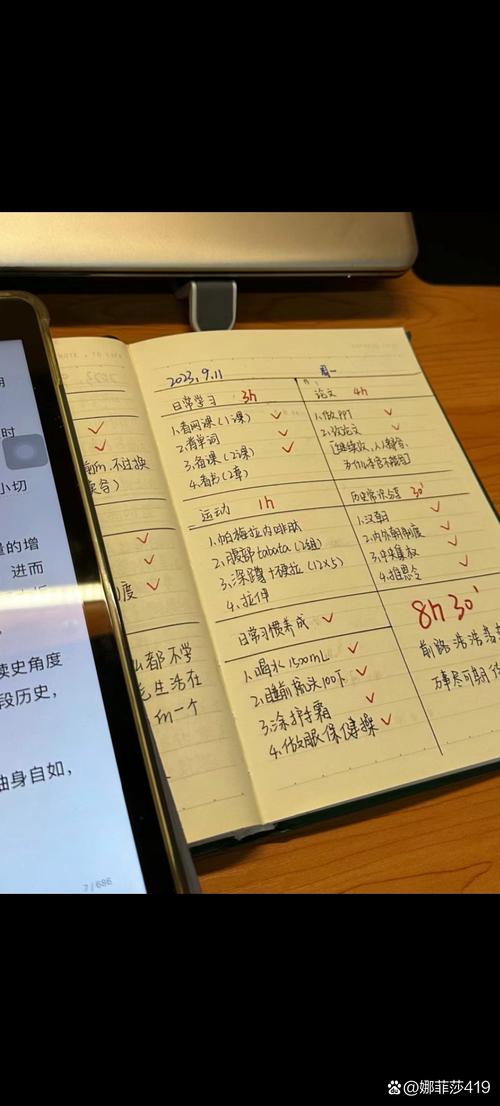 时
小切
量的增
进而
读史角度
段历史，
由自如，
7/686
都不学
生活在
一个
2023.9.11
周一
日常学习 3h
1.看网课(1课)
2.背单词
3.备课(2课)
4.看书(2章)
论文 4h
1.做PPT
2.改论文
运动 1h
1.帕梅拉内啡肽
2.腹部tabata(2组)
3.深蹲+硬拉(12×5)
4.拉伸
历史常识 30'
1.汉朝
2.内外朝制度
3.中央集权
4.推恩令
日常习惯养成
1.喝水1500mL
2.睡前梳头100下
3.涂护手霜
4.做眼保健操
8h 30'
前路浩浩荡荡
万事尽可期待
娜菲莎419